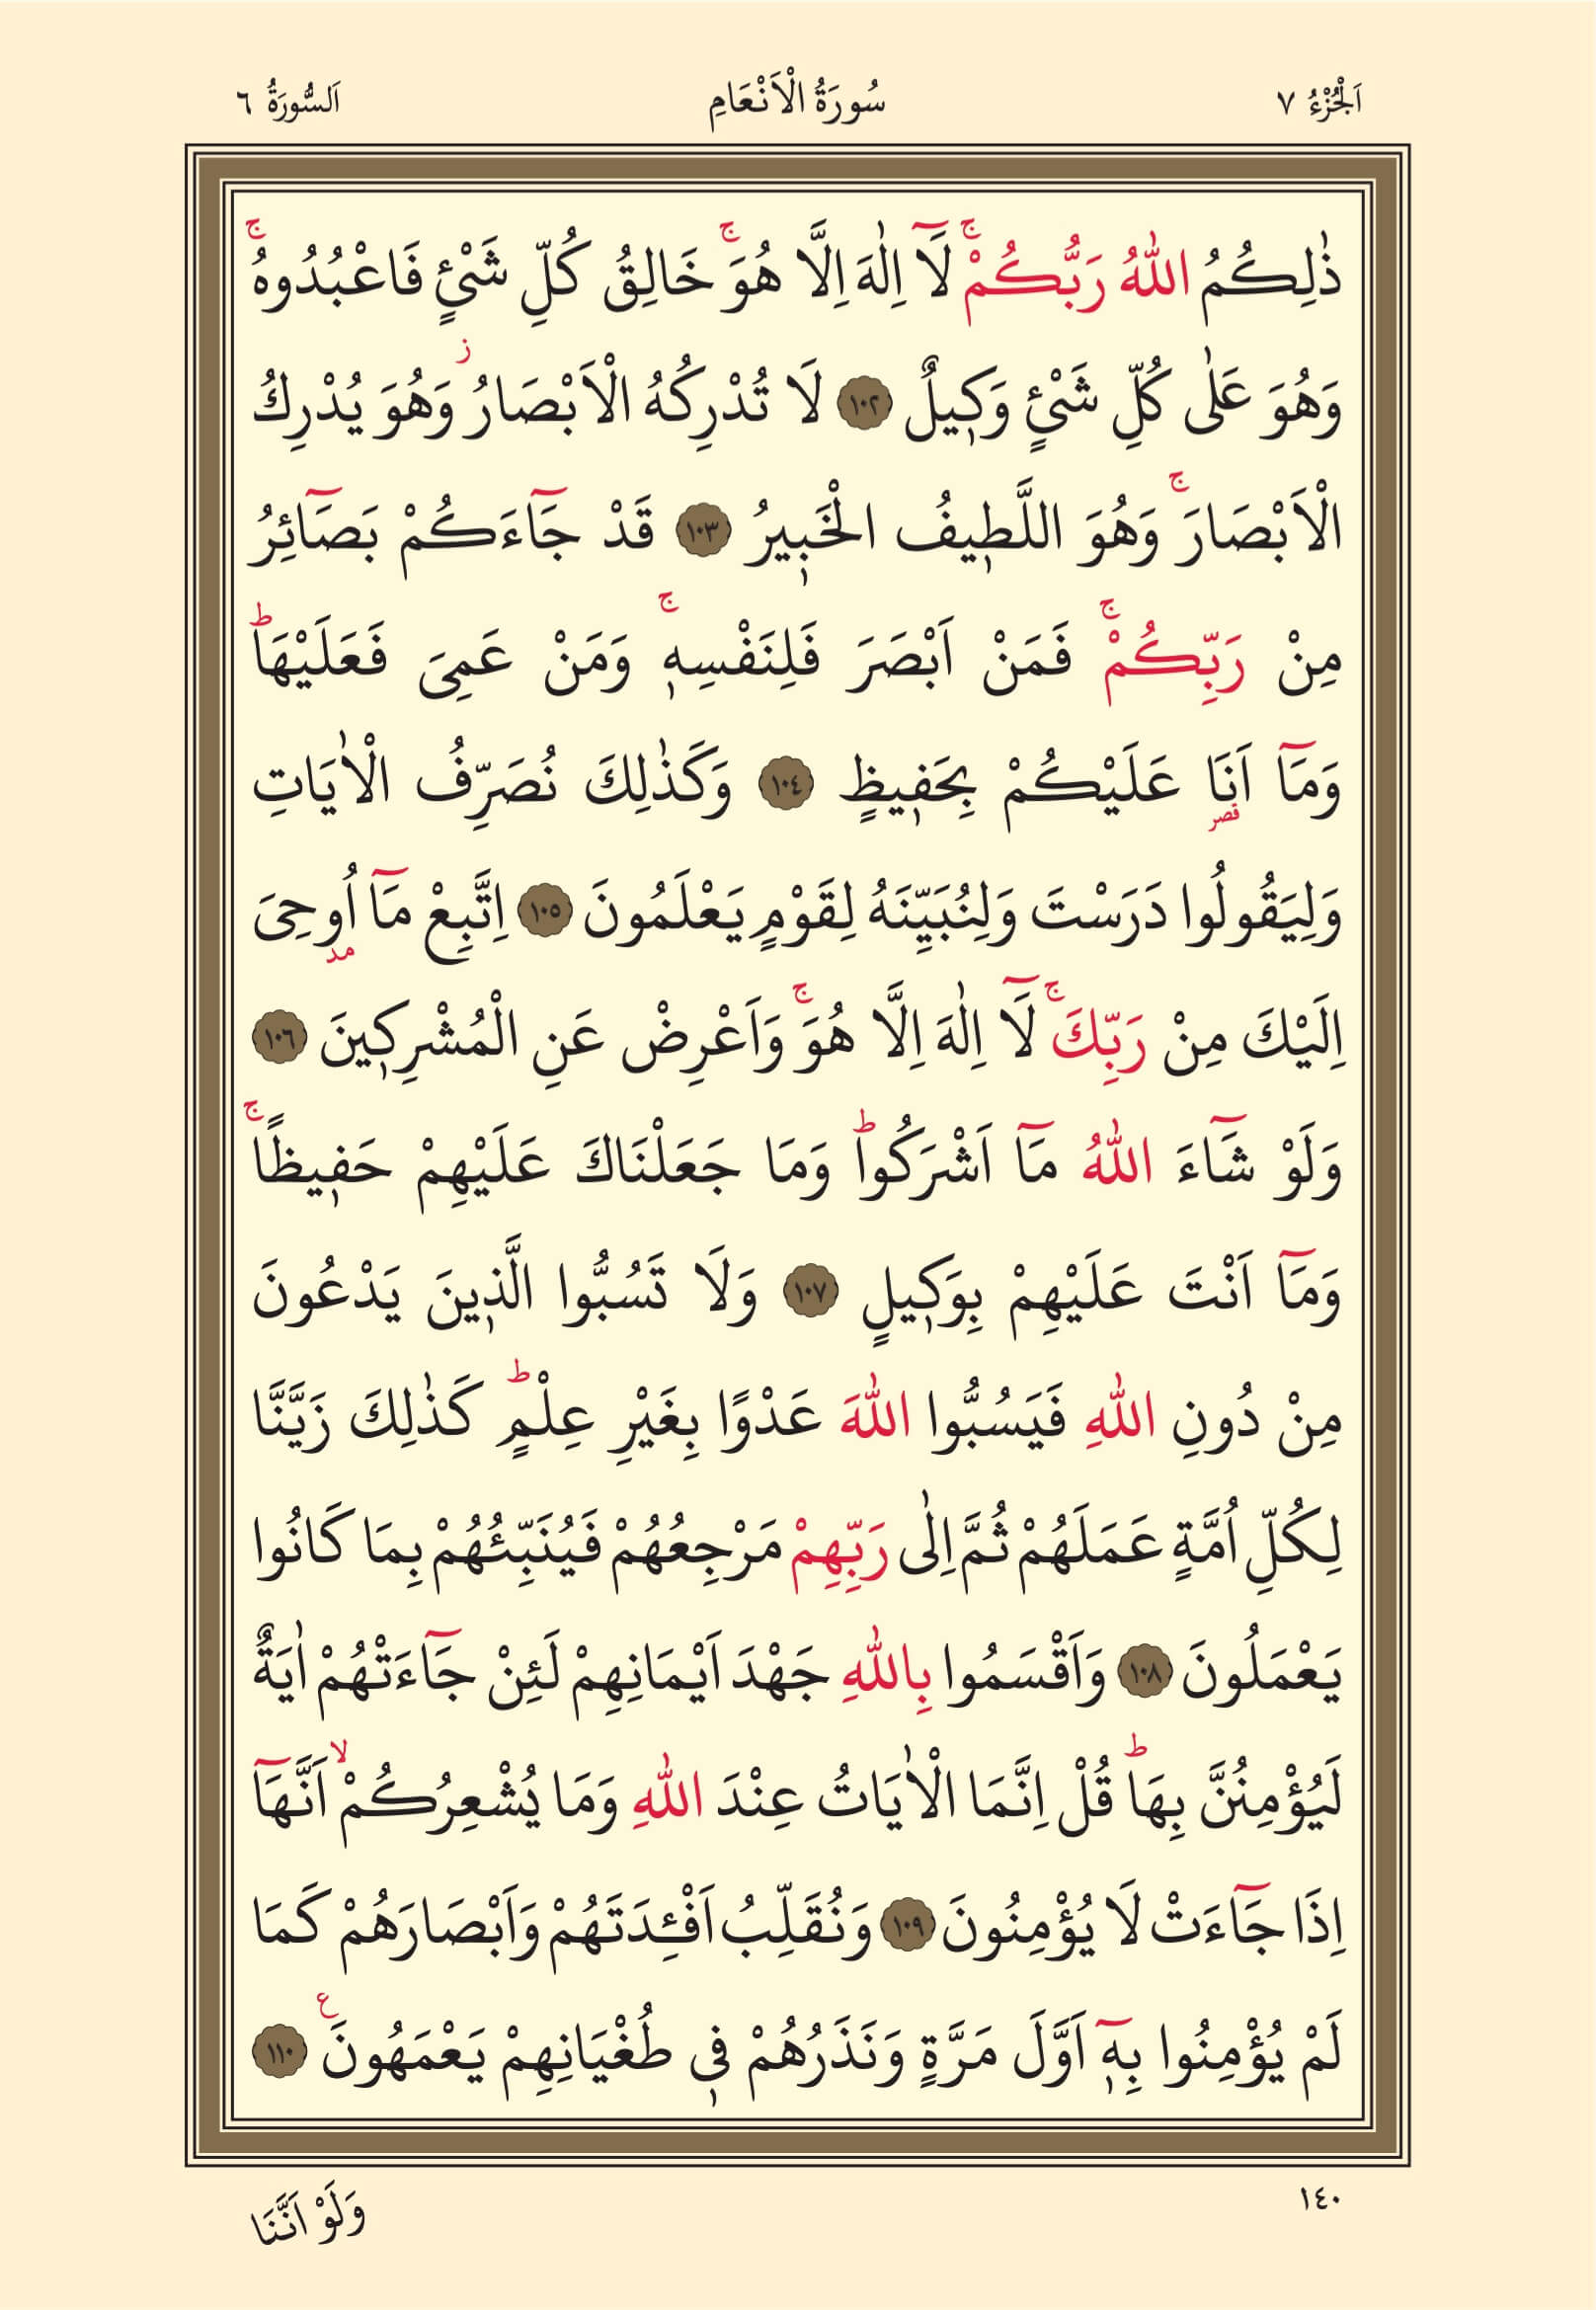 اَلْجُزْءُ ٧ سُورَةُ الْاَنْعَامِ اَلسُّورَةُ ٦
ذٰلِكُمُ اللّٰهُ رَبُّكُمْۚ لَٓا اِلٰهَ اِلَّا هُوَۚ خَالِقُ كُلِّ شَيْءٍ فَاعْبُدُوهُۚ
وَهُوَ عَلٰى كُلِّ شَيْءٍ وَك۪يلٌ ١٠٢ لَا تُدْرِكُهُ الْاَبْصَارُۘ وَهُوَ يُدْرِكُ
الْاَبْصَارَۚ وَهُوَ اللَّط۪يفُ الْخَب۪يرُ ١٠٣ قَدْ جَٓاءَكُمْ بَصَٓائِرُ
مِنْ رَبِّكُمْۚ فَمَنْ اَبْصَرَ فَلِنَفْسِه۪ۚ وَمَنْ عَمِيَ فَعَلَيْهَاۜ
وَمَٓا اَنَا۬ عَلَيْكُمْ بِحَف۪يظٍ ١٠٤ وَكَذٰلِكَ نُصَرِّفُ الْاٰيَاتِ
وَلِيَقُولُوا دَرَسْتَ وَلِنُبَيِّنَهُ لِقَوْمٍ يَعْلَمُونَ ١٠٥ اِتَّبِعْ مَٓا اُو۫حِيَ
اِلَيْكَ مِنْ رَبِّكَۚ لَٓا اِلٰهَ اِلَّا هُوَۚ وَاَعْرِضْ عَنِ الْمُشْرِك۪ينَ ١٠٦
وَلَوْ شَٓاءَ اللّٰهُ مَٓا اَشْرَكُواۜ وَمَا جَعَلْنَاكَ عَلَيْهِمْ حَف۪يظًاۚ
وَمَٓا اَنْتَ عَلَيْهِمْ بِوَك۪يلٍ ١٠٧ وَلَا تَسُبُّوا الَّذ۪ينَ يَدْعُونَ
مِنْ دُونِ اللّٰهِ فَيَسُبُّوا اللّٰهَ عَدْوًا بِغَيْرِ عِلْمٍۜ كَذٰلِكَ زَيَّنَّا
لِكُلِّ اُمَّةٍ عَمَلَهُمْ ثُمَّ اِلٰى رَبِّهِمْ مَرْجِعُهُمْ فَيُنَبِّئُهُمْ بِمَا كَانُوا
يَعْمَلُونَ ١٠٨ وَاَقْسَمُوا بِاللّٰهِ جَهْدَ اَيْمَانِهِمْ لَئِنْ جَٓاءَتْهُمْ اٰيَةٌ
لَيُؤْمِنُنَّ بِهَاۜ قُلْ اِنَّمَا الْاٰيَاتُ عِنْدَ اللّٰهِ وَمَا يُشْعِرُكُمْۙ اَنَّهَٓا
اِذَا جَٓاءَتْ لَا يُؤْمِنُونَ ١٠٩ وَنُقَلِّبُ اَفْـِٔدَتَهُمْ وَاَبْصَارَهُمْ كَمَا
لَمْ يُؤْمِنُوا بِه۪ٓ اَوَّلَ مَرَّةٍ وَنَذَرُهُمْ ف۪ي طُغْيَانِهِمْ يَعْمَهُونَ۟ ١١٠
١٤٠ وَلَوْ اَنَّنَا